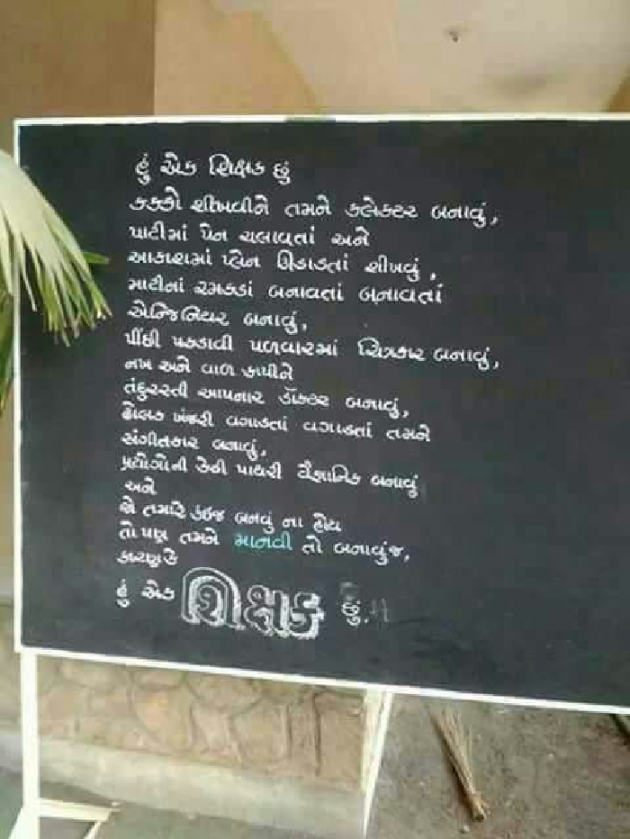 હું એક શિક્ષક છું
કક્કો શીખવીને તમને કલેક્ટર બનાવું,
પાટીમાં પેન ચલાવતાં અને
આકાશમાં પ્લેન ઊડાડતાં શીખવું,
માટીનાં રમકડાં બનાવતાં બનાવતાં
એન્જિનિયર બનાવું,
પીંછી પકડાવી પળવારમાં ચિત્રકાર બનાવું,
નખ અને વાળ કાપીને
તંદુરસ્તી આપનાર ડૉક્ટર બનાવું,
ઢોલક ખંજરી વગાડતાં વગાડતાં તમને
સંગીતકાર બનાવું,
પ્રયોગોની કેડી પાથરી વૈજ્ઞાનિક બનાવું
અને
જો તમારે કંઇજ બનવું ના હોય
તો પણ તમને માનવી તો બનાવુંજ,
કારણકે
હું એક શિક્ષક છું.